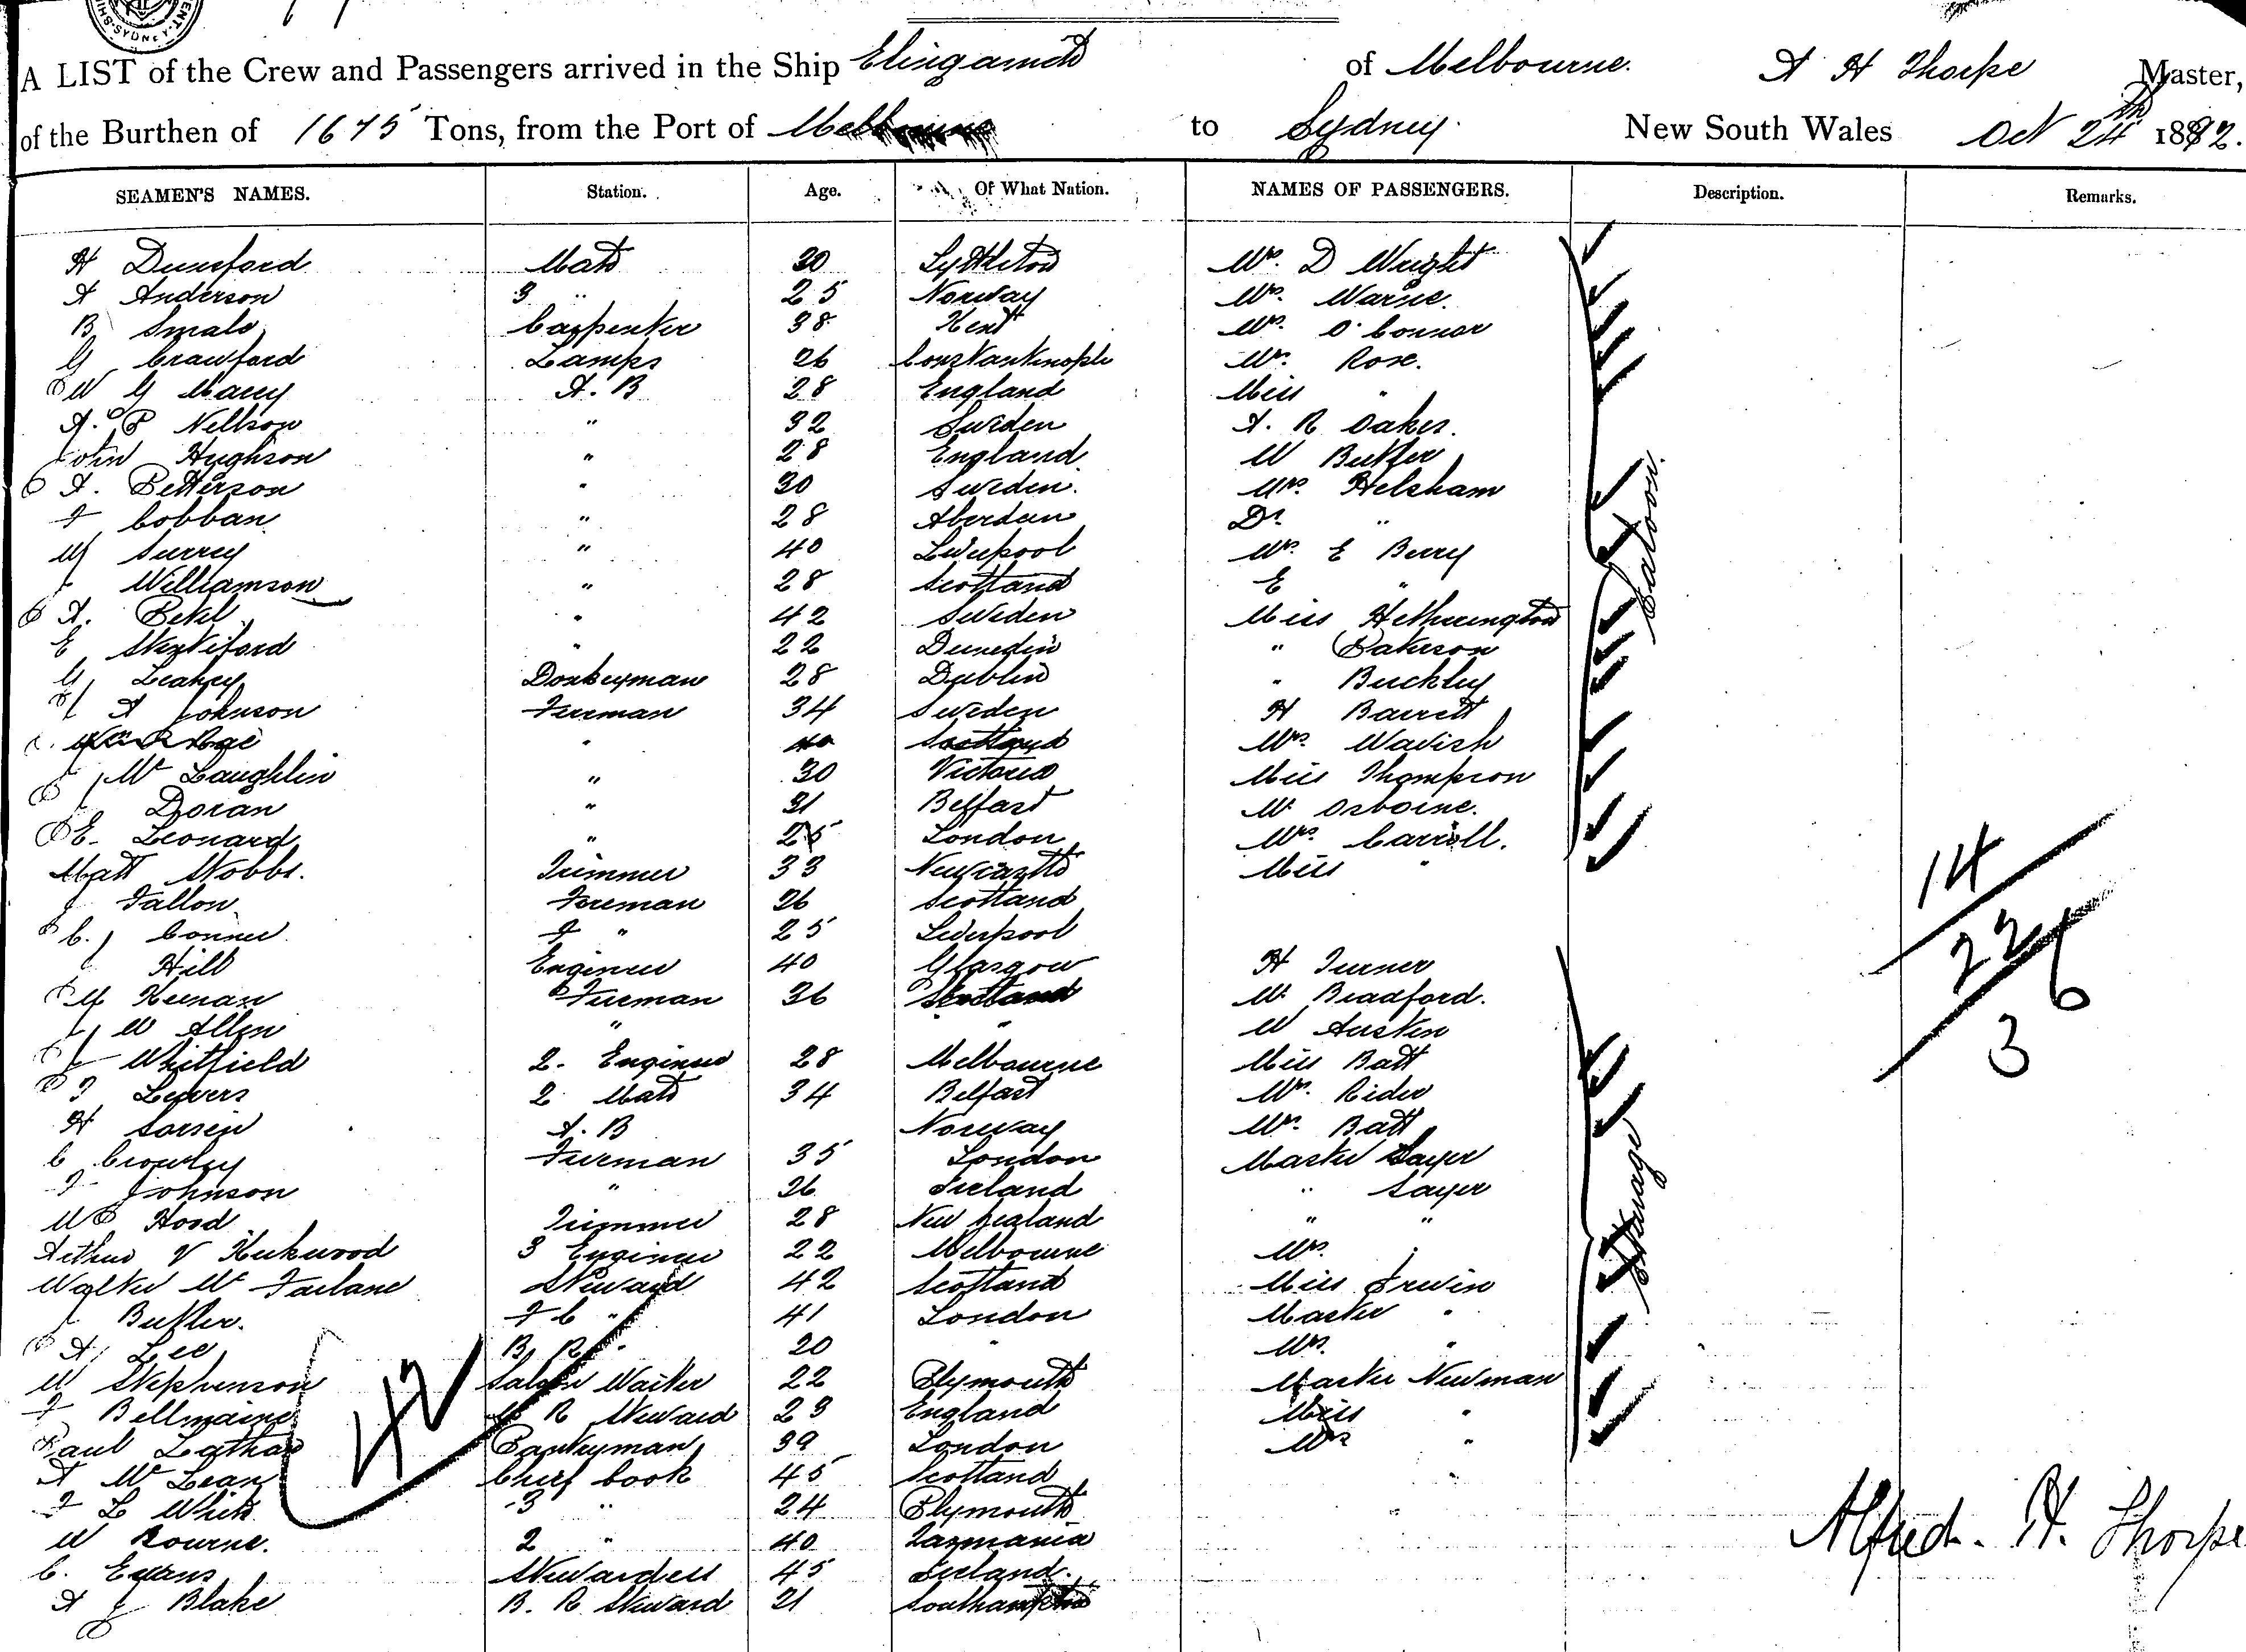 SYDNEY
A LIST of the Crew and Passengers arrived in the Ship Elingamite of Melbourne. A H Thorpe Master,
of the Burthen of 1675 Tons, from the Port of Melbourne to Sydney. New South Wales Oct 24th 1892.
SEAMEN'S NAMES. Station. Age. Of What Nation. NAMES OF PASSENGERS. Description. Remarks.
H Dunsford Mate 30 Lyttleton Mr. D Wright
A Anderson 3 " 25 Norway Mrs. Warne.
B Smale Carpenter 38 Kent Mr. O'Connor
G Crawford Lamps 26 Constantinople Mr. Rose.
W G A. B 28 England Miss "
A. P Nellson " 32 Sweden A. R Oakes.
John Hughson " 28 England W Butler
A. Petterson " 30 Sweden. Mrs. Helsham
F Cobban " 28 Aberdeen Dr. "
W Surrey " 40 Liverpool Mrs. E Berry
J Williamson " 28 Scotland E "
A. Petel " 42 Sweden Miss Hetherington
E " 22 Dunedin " Paterson
G Leahey Donkeyman 28 Dublin " Buckley
A Johnson Fireman 34 Sweden H Barrett
" 40 Scotland Mrs. Wavish
J McLaughlin " 30 Victoria Miss Thompson
J Doran " 31 Belfast W Osborne.
E. Leonard " 25 London Mrs. Carroll.
Matt Nobbs. Trimmer 33 Newcastle Miss "
J Fallon Foreman 26 Scotland
C. J Conner F " 25 Liverpool
J Hill Engineer 40 Glasgow H Turner
Keenan Fireman 36 Scotland W. Bradford.
J W Allen " " W Austin
J Whitfield 2. Engineer 28 Melbourne Miss Batt
Levers 2 Mate 34 Belfast Mr. Rider
H Sorsen A. B Norway Mrs. Batt
C Crowley Fireman 35 London Master Sayer
J Johnson " 26 Ireland " Sayer
W Hood Trimmer 28 New Zealand " "
Arthur V Kirkwood 3 Engineer 22 Melbourne Mrs. "
Walter McFarlane Steward 42 Scotland Miss Irwin
J Butler. F C " 41 London Master "
A Lee B. R " 20 " Mrs. "
W Stephenson Saloon Waiter 22 Plymouth Master Newman
F Bellmaine R Steward 23 England Miss "
Paul Pantryman 39 London Mrs "
A McLean Chief Cook 45 Scotland
F L White 3 " 24 Plymouth
W Bourne. 2 " 40 Tasmania
C. Evans Stewardess 45 Ireland.
A J Blake B. R Steward 21 Southampton
Saloon.
Steerage
42
14
22
36
Alfred. H. Thorpe